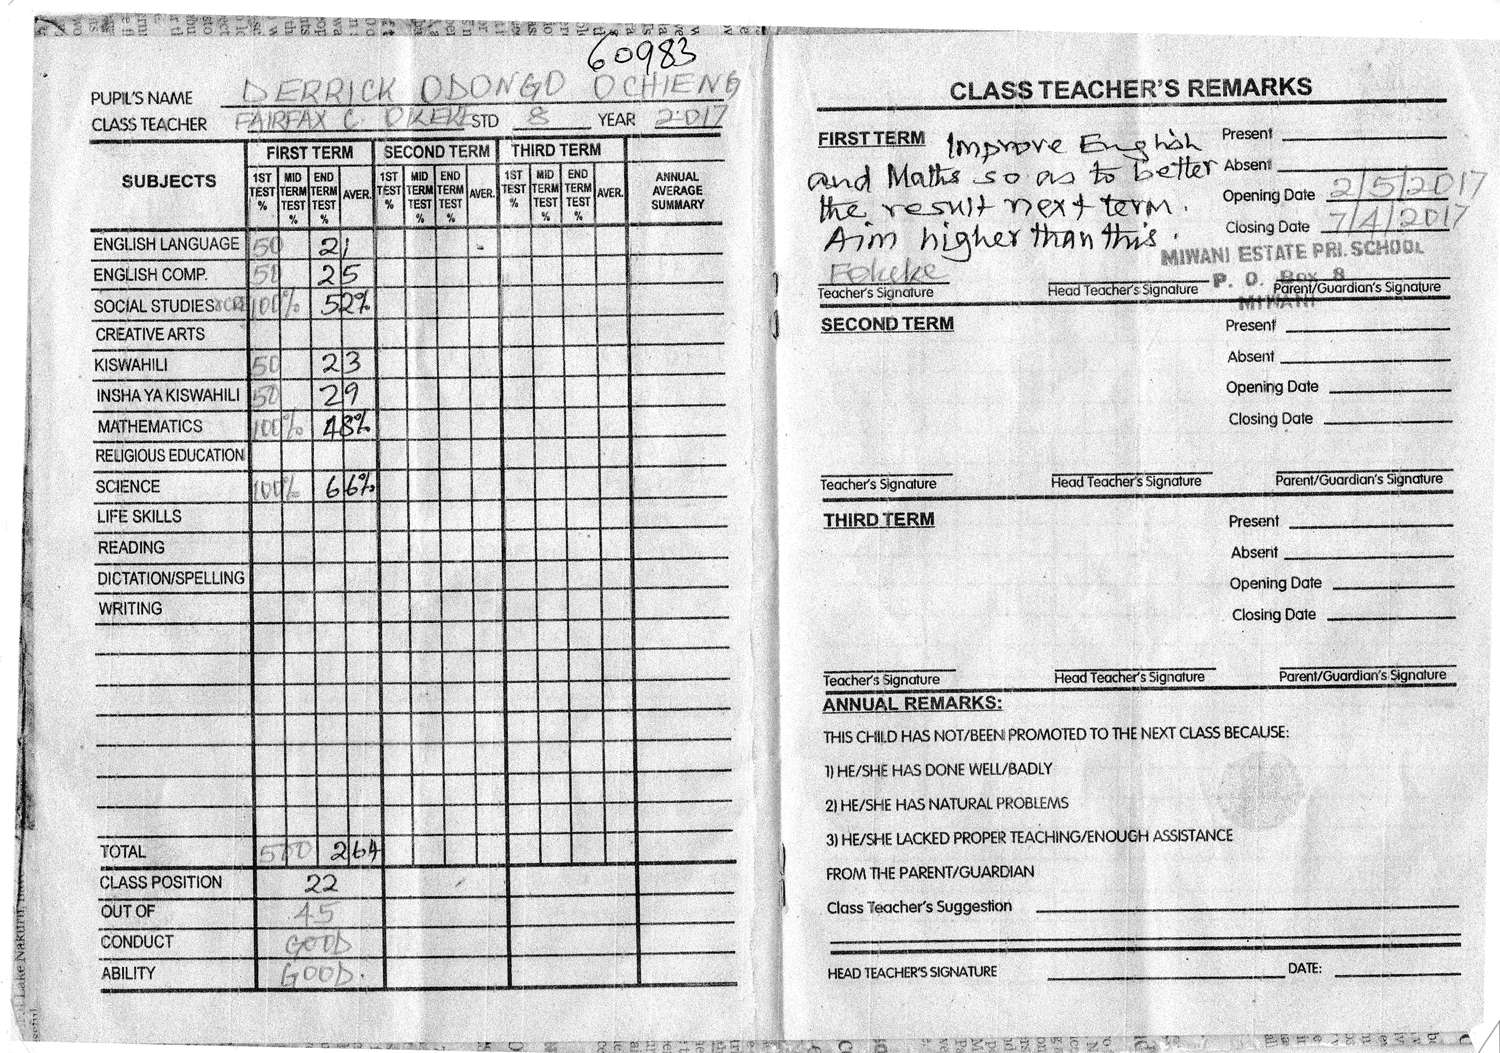 60983
PUPIL'S NAME DERRICK ODONGO OCHIENG
CLASS TEACHER FAIRFAX C. OKEKE STD 8 YEAR 2017
SUBJECTS FIRST TERM SECOND TERM THIRD TERM ANNUAL AVERAGE SUMMARY
1ST TEST % MID TERM TEST % END TERM TEST % AVER. 1ST TEST % MID TERM TEST % END TERM TEST % AVER. 1ST TEST % MID TERM TEST % END TERM TEST % AVER.
ENGLISH LANGUAGE 50 21
ENGLISH COMP. 50 25
SOCIAL STUDIES 100% 52%
CREATIVE ARTS
KISWAHILI 50 23
INSHA YA KISWAHILI 50 29
MATHEMATICS 100% 48%
RELIGIOUS EDUCATION
SCIENCE 100% 66%
LIFE SKILLS
READING
DICTATION/SPELLING
WRITING
TOTAL 500 264
CLASS POSITION 22
OUT OF 45
CONDUCT GOOD
ABILITY GOOD.
CLASS TEACHER'S REMARKS
FIRST TERM Improve English
and Maths so as to better
the result next term.
Aim higher than this.
Present
Absent
Opening Date 2/5/2017
Closing Date 7/4/2017
MIWANI ESTATE PRI. SCHOOL
P. O. Box 8
MIWANI
Fokeke
Teacher's Signature Head Teacher's Signature Parent/Guardian's Signature
SECOND TERM
Present
Absent
Opening Date
Closing Date
Teacher's Signature Head Teacher's Signature Parent/Guardian's Signature
THIRD TERM
Present
Absent
Opening Date
Closing Date
Teacher's Signature Head Teacher's Signature Parent/Guardian's Signature
ANNUAL REMARKS:
THIS CHILD HAS NOT/BEEN PROMOTED TO THE NEXT CLASS BECAUSE:
1) HE/SHE HAS DONE WELL/BADLY
2) HE/SHE HAS NATURAL PROBLEMS
3) HE/SHE LACKED PROPER TEACHING/ENOUGH ASSISTANCE
FROM THE PARENT/GUARDIAN
Class Teacher's Suggestion
HEAD TEACHER'S SIGNATURE DATE:
Lake Nakuru,